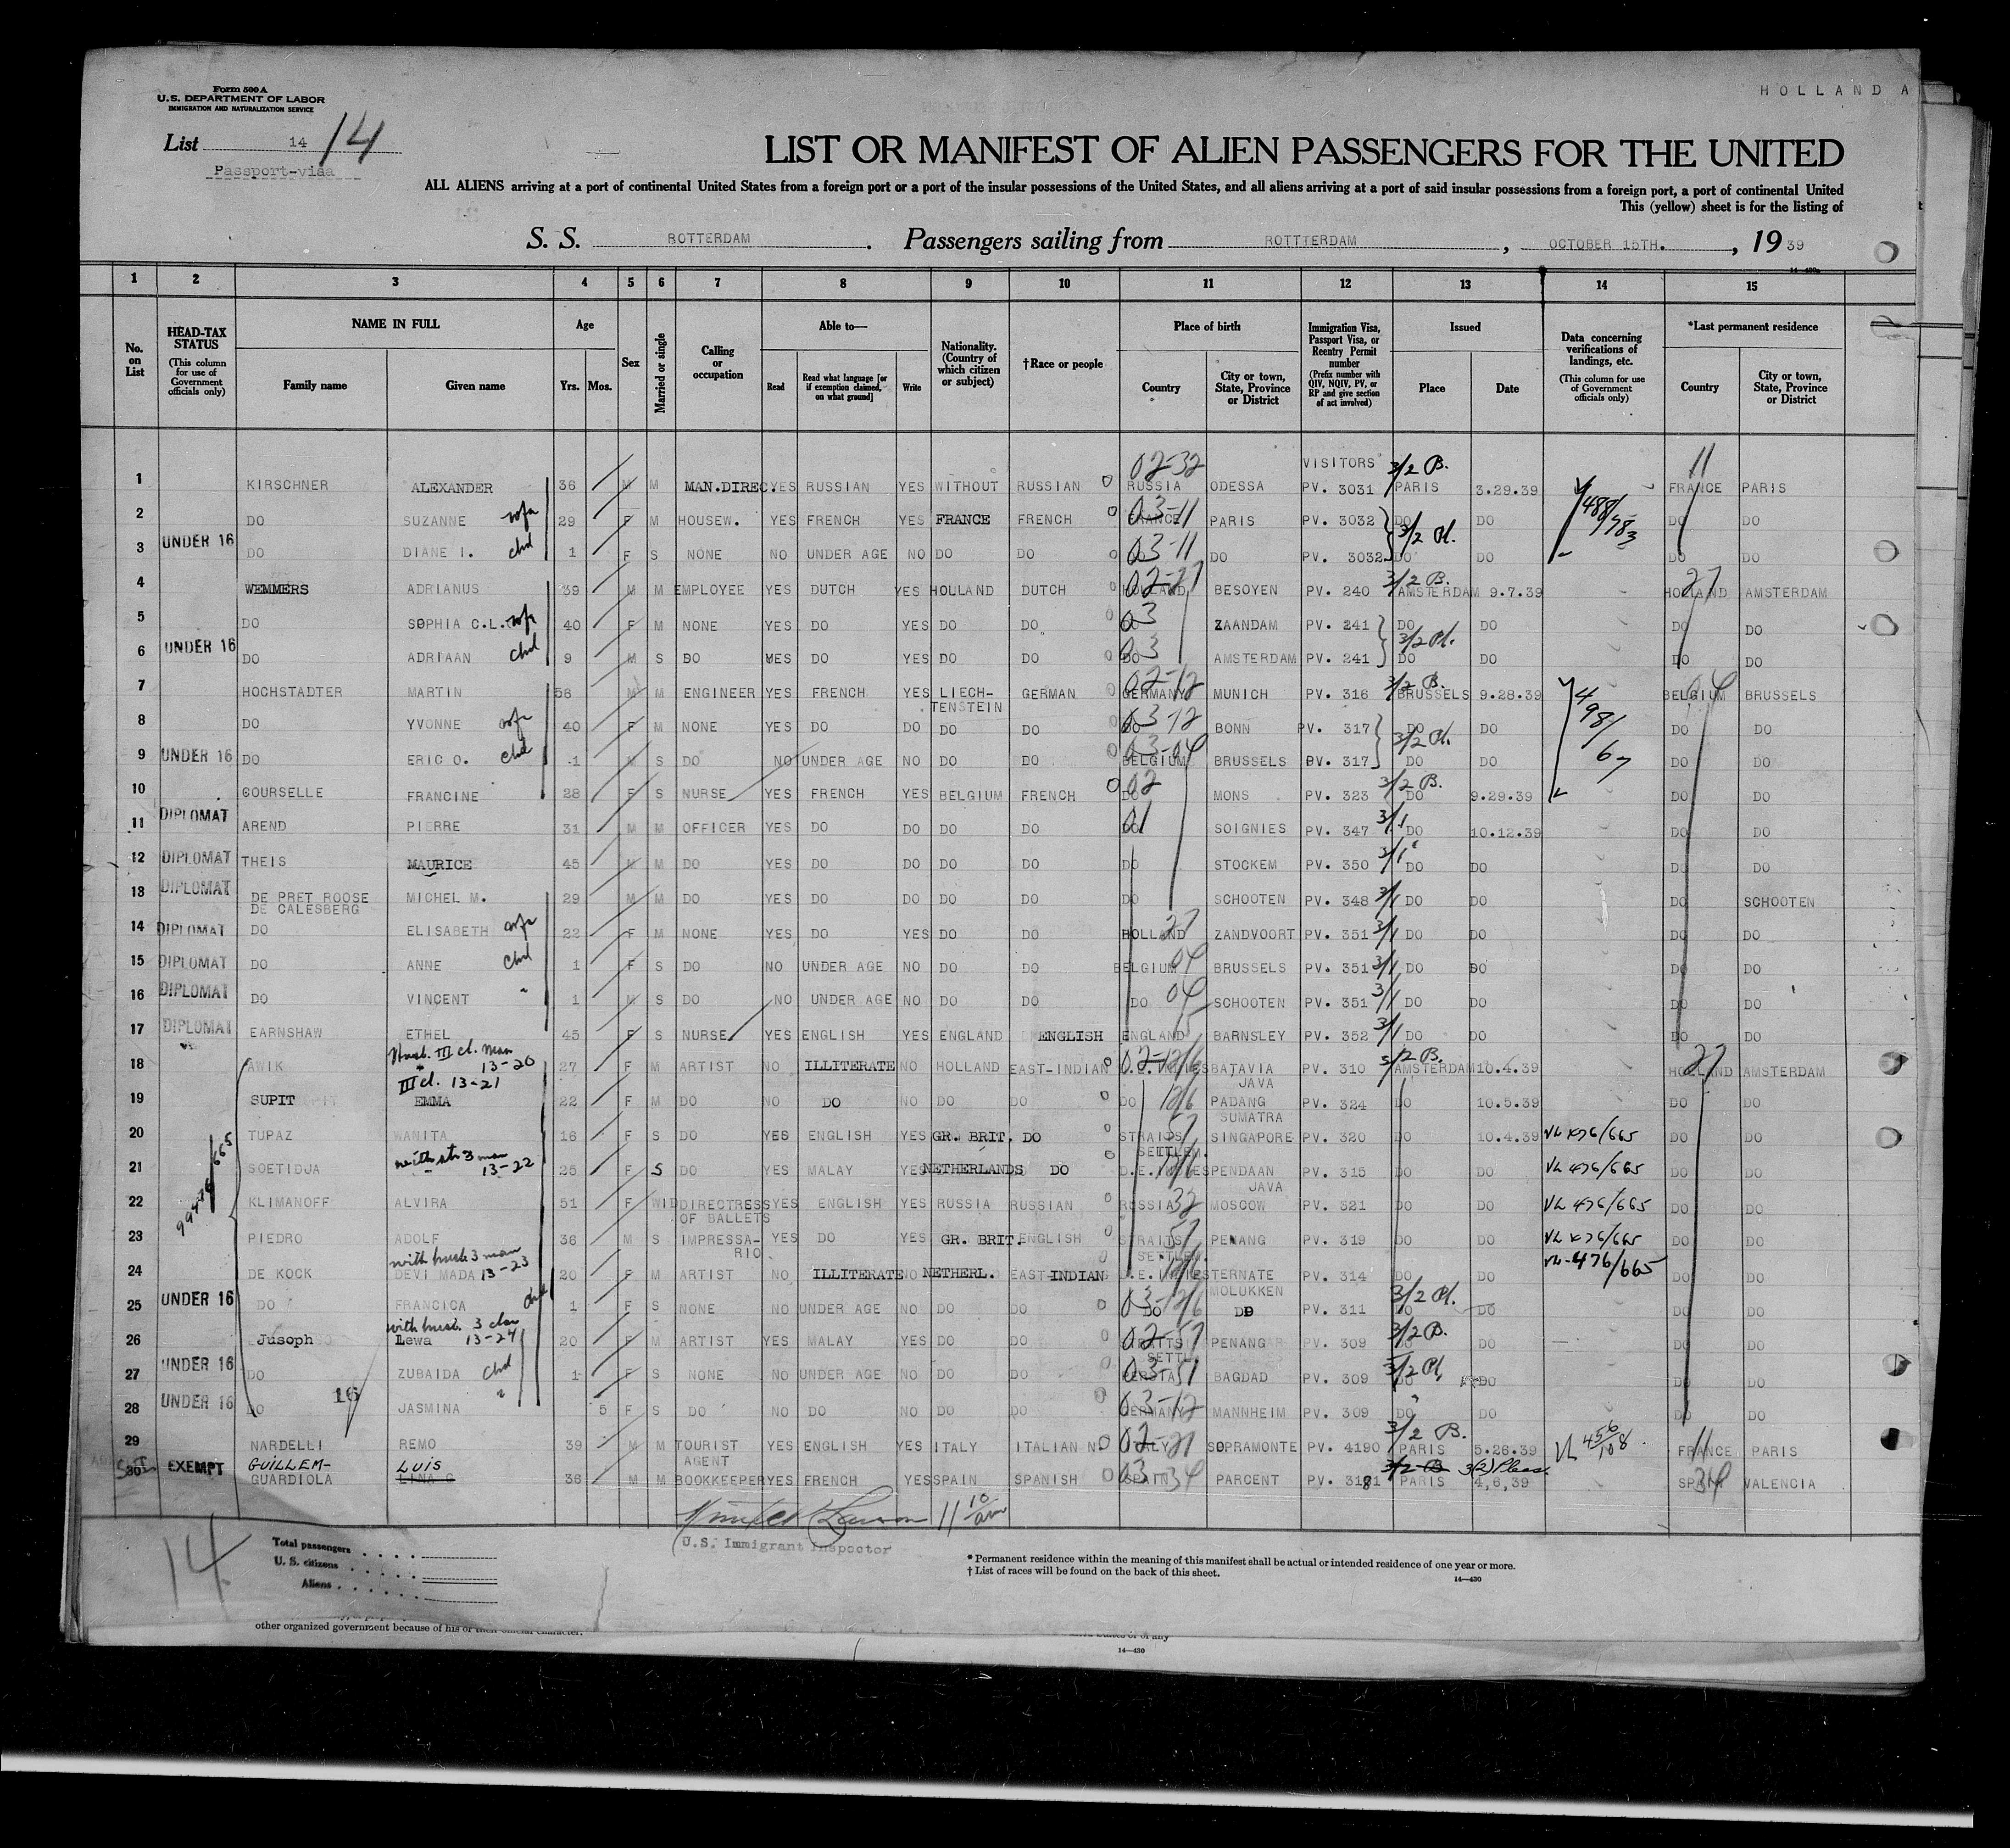 HOLLAND A
Form 500 A
U.S. DEPARTMENT OF LABOR
IMMIGRATION AND NATURALIZATION SERVICE
List 14 14
Passport-visa
LIST OR MANIFEST OF ALIEN PASSENGERS FOR THE UNITED
ALL ALIENS arriving at a port of continental United States from a foreign port or a port of the insular possessions of the United States, and all aliens arriving at a port of said insular possessions from a foreign port, a port of continental United
This (yellow) sheet is for the listing of
S. S. ROTTERDAM. Passengers sailing from ROTTTERDAM, OCTOBER 15TH., 19 39
1 2 3 4 5 6 7 8 9 10 11 12 13 14 15
No. on List
HEAD-TAX STATUS (This column for use of Government officials only)
NAME IN FULL
Family name
Given name
Age
Yrs. Mos.
Sex
Married or single
Calling or occupation
Able to—
Read
Read what language [or if exemption claimed, on what ground]
Write
Nationality. (Country of which citizen or subject)
†Race or people
Place of birth
Country
City or town, State, Province or District
Immigration Visa, Passport Visa, or Reentry Permit number (Prefix number with QIV, NQIV, PV, or RP and give section of act involved)
Issued
Place
Date
Data concerning verifications of landings, etc. (This column for use of Government officials only)
*Last permanent residence
Country
City or town, State, Province or District
02-32 VISITORS 3/2 B. 11
1 KIRSCHNER ALEXANDER 36 M M MAN.DIREC. YES RUSSIAN YES WITHOUT RUSSIAN RUSSIA ODESSA PV. 3031 PARIS 3.29.39 FRANCE PARIS
2 DO SUZANNE wfe 29 F M HOUSEW. YES FRENCH YES FRANCE FRENCH FRANCE 03-11 PARIS PV. 3032 DO DO DO DO
3 UNDER 16 DO DIANE I. chd 1 F S NONE NO UNDER AGE NO DO DO DO 03-11 DO PV. 3032 DO DO DO DO
4 WEMMERS ADRIANUS 39 M M EMPLOYEE YES DUTCH YES HOLLAND DUTCH HOLLAND 02-27 BESOYEN PV. 240 3/2 B. AMSTERDAM 9.7.39 HOLLAND 27 AMSTERDAM
5 DO SOPHIA C.L. wfe 40 F M NONE YES DO YES DO DO DO 03 ZAANDAM PV. 241 DO DO DO DO
6 UNDER 16 DO ADRIAAN chd 9 M S DO YES DO YES DO DO DO 03 AMSTERDAM PV. 241 DO DO DO DO
7 HOCHSTADTER MARTIN 56 M M ENGINEER YES FRENCH YES LIECH-TENSTEIN GERMAN GERMANY 02-12 MUNICH PV. 316 3/2 B. BRUSSELS 9.28.39 BELGIUM 04 BRUSSELS
8 DO YVONNE wfe 40 F M NONE YES DO DO DO DO DO 03-12 BONN PV. 317 DO DO DO DO
9 UNDER 16 DO ERIC O. chd 1 M S DO NO UNDER AGE NO DO DO BELGIUM 03-04 BRUSSELS PV. 317 DO DO DO DO
10 COURSELLE FRANCINE 28 F S NURSE YES FRENCH YES BELGIUM FRENCH DO 02 MONS PV. 323 3/2 B. DO 9.29.39 DO DO
11 DIPLOMAT AREND PIERRE 31 M M OFFICER YES DO DO DO DO DO 01 SOIGNIES PV. 347 3/1 DO 10.12.39 DO DO
12 DIPLOMAT THEIS MAURICE 45 M M DO YES DO DO DO DO DO STOCKEM PV. 350 3/1 DO DO DO DO
13 DIPLOMAT DE PRET ROOSE DE CALESBERG MICHEL M. 29 M M DO YES DO DO DO DO DO SCHOOTEN PV. 348 3/1 DO DO DO SCHOOTEN
14 DIPLOMAT DO ELISABETH wfe 22 F M NONE YES DO YES DO DO HOLLAND 27 ZANDVOORT PV. 351 3/1 DO DO DO DO
15 DIPLOMAT DO ANNE chd 1 F S DO NO UNDER AGE NO DO DO BELGIUM 04 BRUSSELS PV. 351 3/1 DO DO DO DO
16 DIPLOMAT DO VINCENT " 1 M S DO NO UNDER AGE NO DO DO DO 04 SCHOOTEN PV. 351 3/1 DO DO DO DO
17 DIPLOMAT EARNSHAW ETHEL 45 F S NURSE YES ENGLISH YES ENGLAND ENGLISH ENGLAND BARNSLEY PV. 352 3/1 DO DO DO DO
Husb. III cl. Man 13-20
18 AWIK 27 F M ARTIST NO ILLITERATE NO HOLLAND EAST-INDIAN BATAVIA JAVA PV. 310 AMSTERDAM 10.4.39 HOLLAND 27 AMSTERDAM
III cl. 13-21
19 SUPIT EMMA 22 F M DO NO DO NO DO DO DO PADANG SUMATRA PV. 324 DO 10.5.39 DO DO
20 TUPAZ WANITA 16 F S DO YES ENGLISH YES GR. BRIT. DO STRAITS SETTLEM. 57 SINGAPORE PV. 320 DO 10.4.39 VL 476/665 DO DO
with str 3 man 13-22
21 SOETIDJA 25 F S DO YES MALAY YES NETHERLANDS DO PENDAAN JAVA PV. 315 DO DO VL 476/665 DO DO
22 KLIMANOFF ALVIRA 51 F WID DIRECTRESS OF BALLETS YES ENGLISH YES RUSSIA RUSSIAN RUSSIA 32 MOSCOW PV. 321 DO DO VL 476/665 DO DO
23 PIEDRO ADOLF 36 M S IMPRESSA-RIO YES DO YES GR. BRIT. ENGLISH STRAITS SETTLEM. 57 PENANG PV. 319 DO DO VL 476/665 DO DO
with husb 3 man 13-23
24 DE KOCK DEVI MADA 20 F M ARTIST NO ILLITERATE NO NETHERL. EAST-INDIAN TERNATE MOLUKKEN PV. 314 DO DO VL-476/665 DO DO
25 UNDER 16 DO FRANCICA chd 1 F S NONE NO UNDER AGE NO DO DO DO DO PV. 311 3/2 Pl. DO DO DO DO
with husb. 3 clas 13-24
26 Jusoph Lewa 20 F M ARTIST YES MALAY YES DO DO STRAITS SETTL. 02-57 PENANG PV. 309 3/2 B. DO DO DO DO
27 UNDER 16 DO ZUBAIDA chd 1 F S NONE NO UNDER AGE NO DO DO BAGDAD PV. 309 3/2 Pl. DO DO DO DO
28 UNDER 16 DO 16 JASMINA " 5 F S DO NO DO NO DO DO GERMANY 03-12 MANNHEIM PV. 309 " DO DO DO DO
29 NARDELLI REMO 39 M M TOURIST AGENT YES ENGLISH YES ITALY ITALIAN N. ITALY 02-21 SOPRAMONTE PV. 4190 3/2 B. PARIS 5.26.39 VL 456/108 FRANCE 11 PARIS
30 EXEMPT GUILLEM-GUARDIOLA LUIS 36 M M BOOKKEEPER YES FRENCH YES SPAIN SPANISH SPAIN 34 PARCENT PV. 3181 3/2 B 3(2) Pleas. PARIS 4,6,39 SPAIN 34 VALENCIA
11 10/am
U.S. Immigrant Inspector
14
Total passengers
U. S. citizens
Aliens
* Permanent residence within the meaning of this manifest shall be actual or intended residence of one year or more.
† List of races will be found on the back of this sheet.
14—430
other organized government because of his or their official character.
14—430